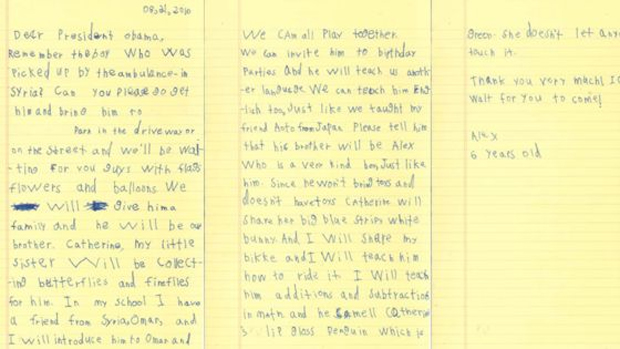 08,21,2010
Dear President obama,
Remember the boy who was
picked up by the ambulance in
Syria? Can you please go get
him and bring him to
Park in the driveway or
on the street and we'll be wai
-ting for you guys with flags
flowers and balloons. We
will give him a
family and he will be our
brother. Catherine, my little
sister will be collect-
ing butterflies and fireflies
for him. In my school I have
a friend from Syria, Omar, and
I will introduce him to Omar and
We can all play together.
We can invite him to birthday
parties and he will teach us anoth
-er language. We can teach him Eng
-lish too, Just like we taught my
friend Aoto from Japan. Please tell him
that his brother will be Alex
Who is a very kind boy, Just like
him. Since he won't bring toys and
doesn't have toys Catherine will
share her big blue stripy white
bunny. And I will share my
bikke and I will teach him
how to ride it. I will teach
him additions and subtractions
in math. and he smell Catherine
lip gloss penguin which is
green. She doesn't let any
touch it.
Thank you very much! I
wait for you to come!
Alex
6 years old